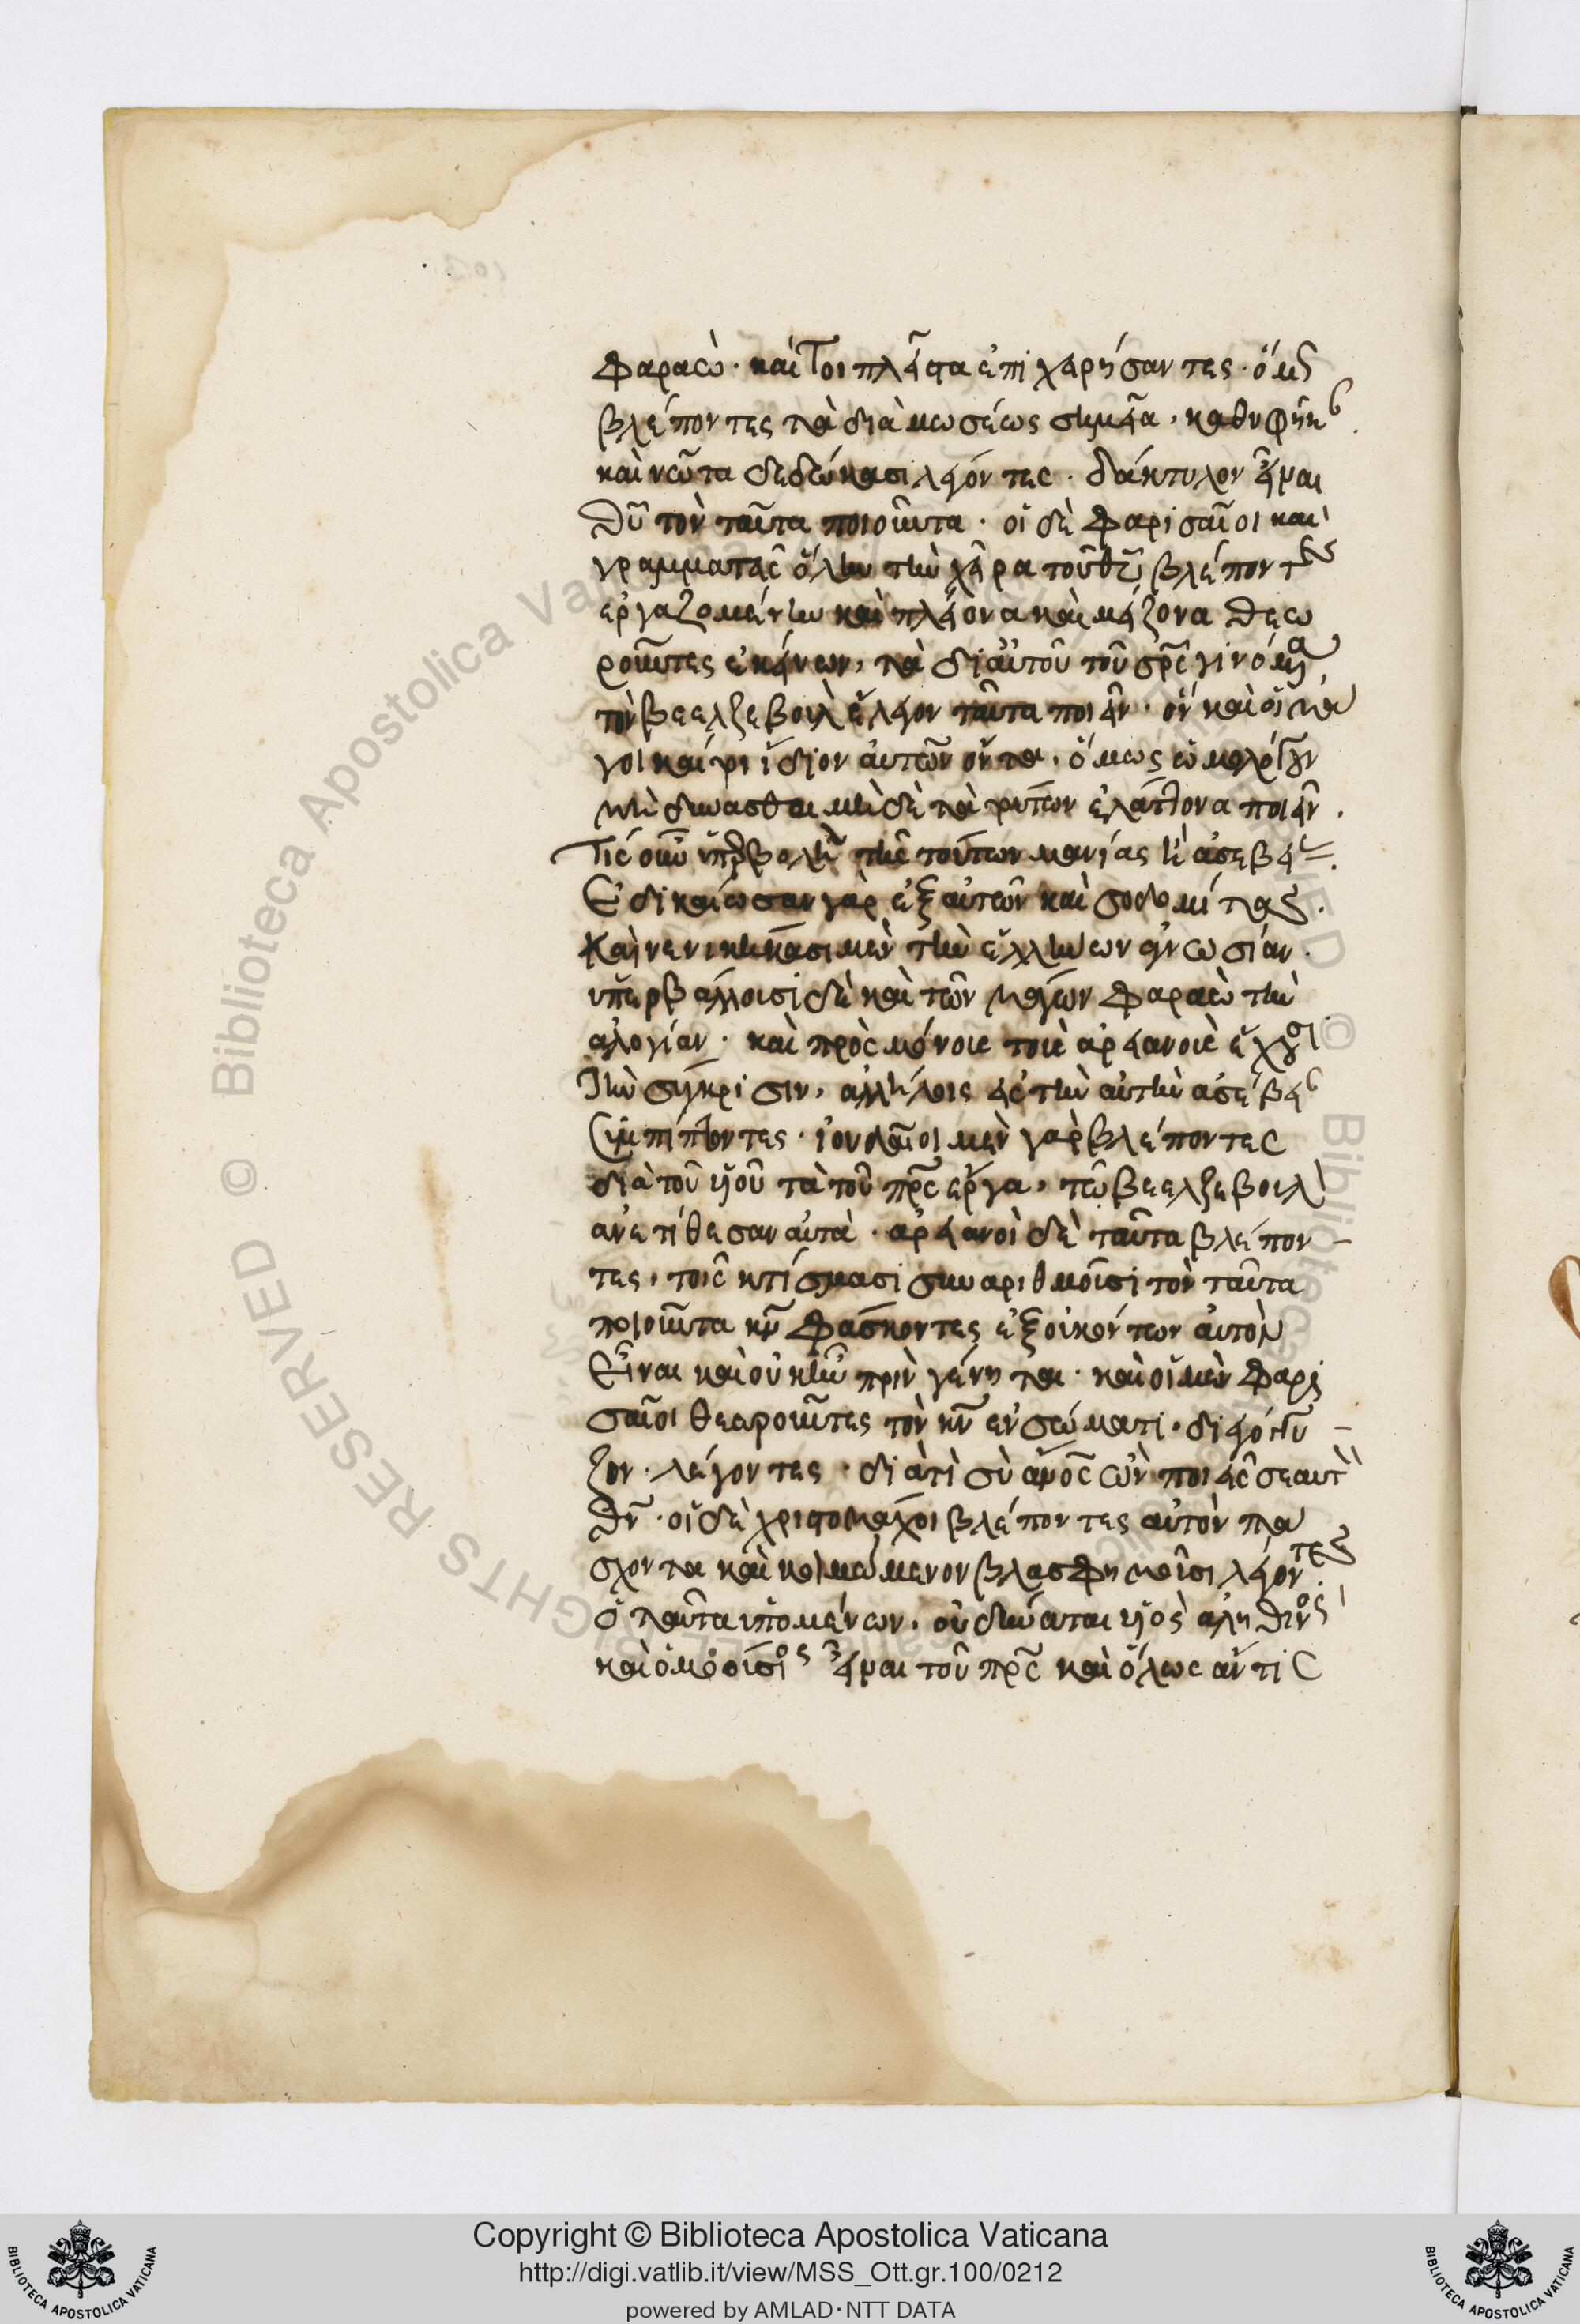 Φαραώ· καίτοι πλεῖστα ἐπιχειρήσαντες· ὅμως
βλέποντες τὰ διὰ μωσέως σημεῖα, καθυφῆκ
καὶ νῶτα δεδώκασι λέγοντες· δάκτυλον εἶναι
θῦ τὸν ταῦτα ποιοῦντα· οἱ δὲ Φαρισαῖοι καὶ
γραμματεῖς ὅλην τὴν χεῖρα τοῦ θῦ βλέποντες
ἐργαζομένην καὶ πλείονα καὶ μείζονα θεω
ροῦντες ἐκείνων, τὰ δι' αὐτοῦ τοῦ σρς γινόμενα
τὸν βεελζεβοὺλ ἔλεγον ταῦτα ποιεῖν· ὃν καὶ οἱ μά
γοι καίπερ ἴδιον αὐτῶν ὄντα, ὅμως ὡμολόγουν
μὴ δύνασθαι μηδὲ τὰ τούτων ἐλάττονα ποιεῖν.
Τίς οὖν ὑπερβολὴ τῆς τούτων μανίας ἢ ἀσεβεί
Ἐδικαίωσαν γὰρ ἐξ αὐτῶν καὶ σοδομίτας.
Καὶ νενικήκασι μὲν τὴν ἑλλήνων ἀγνωσίαν·
ὑπερβάλλουσι δὲ καὶ τῶν μάγων Φαραὼ τὴν
ἀλογίαν· καὶ πρὸς μόνους τοὺς ἀρειανοὺς ἔχουσι
τὴν σύγκρισιν, ἀλλήλοις εἰς τὴν αὐτὴν ἀσέβει
συμπίπτοντες· ἰουδαῖοι μὲν γὰρ βλέποντες
διὰ τοῦ υἱοῦ τὰ τοῦ πρς ἔργα, τῷ βεελζεβοὺλ
ἀνετίθεσαν αὐτά· ἀρειανοὶ δὲ ταῦτα βλέπον
τες, τοῖς κτίσμασι συναριθμοῦσι τὸν ταῦτα
ποιοῦντα κν φάσκοντες ἐξ οὐκ ὄντων αὐτὸν
εἶναι καὶ οὐκ ἦν πρὶν γένηται· καὶ οἱ μὲν Φαρι
σαῖοι θεωροῦντες τὸν κν ἐν σώματι, διεγόγγυ
ζον· λέγοντες· διατί σὺ ἄνος ὢν ποιεῖς σεαυτὸν
θν· οἱ δὲ χριστομάχοι βλέποντες αὐτὸν πά
σχοντα καὶ κοιμώμενον βλασφημοῦσι λέγοντες
ὁ ταῦτα ὑπομένων, οὐ δύναται υἱὸς ἀληθινὸς
καὶ ὁμοούσιος εἶναι τοῦ πρς καὶ ὅλως ἄν τις